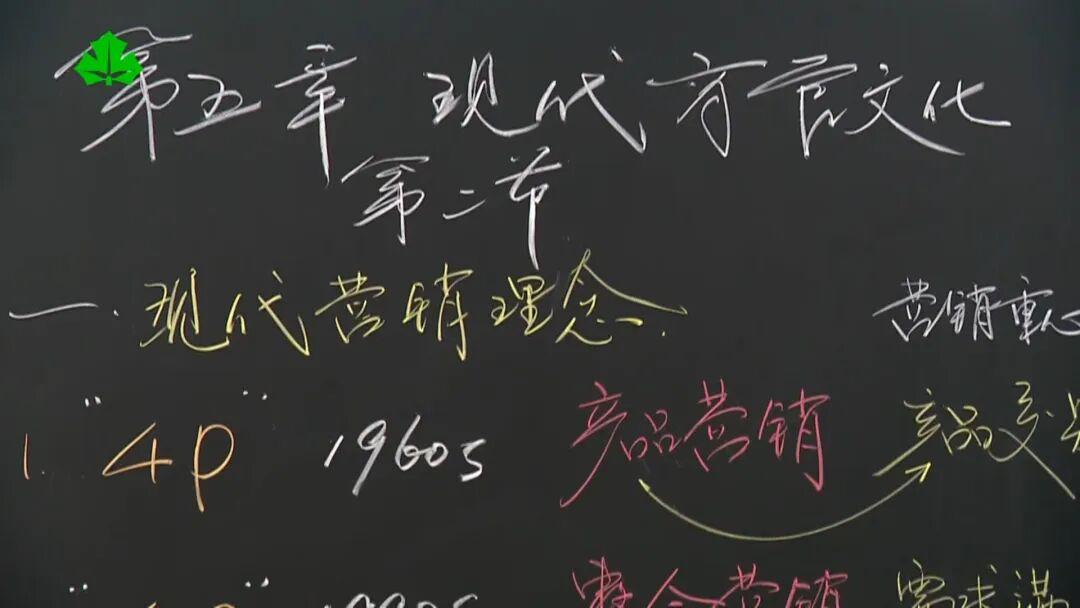 第五章 现代方言文化
第二节
一.现代营销理念.
营销重心
1. "4P" 1960s 产品营销 产品交
整合营销 需求满